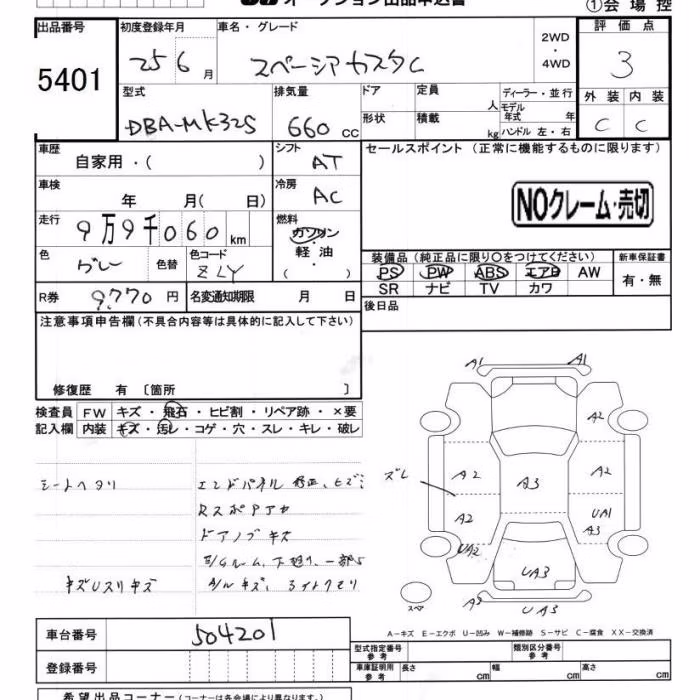 オークション出品申込書
①会場控
出品番号 5401
初度登録年月 25 6 月
車名・グレード スペーシアカスタム
2WD・4WD
評価点 3
外装 C 内装 C
型式 DBA-MK32S
排気量 660 cc
ドア 形状
定員 人
積載 kg
ディーラー・並行
モデル年式 年
ハンドル 左・右
車歴 自家用・( )
シフト AT
セールスポイント (正常に機能するものに限ります)
NOクレーム・売切
車検 年 月( 日)
冷房 AC
走行 9万9千060 km
燃料 ガソリン・軽油・( )
色 グレー 色替
色コード ZLY
装備品 (純正品に限り○をつけてください)
PS PW ABS エアB AW
SR ナビ TV カワ
新車保証書 有・無
R券 9,770 円
名変通知期限 月 日
後日品
注意事項申告欄 (不具合内容等は具体的に記入して下さい)
修復歴 有 〔箇所 〕
検査員記入欄
FW キズ・飛石・ヒビ割・リペア跡・×要
内装 キズ・汚レ・コゲ・穴・スレ・キレ・破レ
シートヘタリ
エンドパネル 修正、ヒズミ
ドアノブ キズ
キズUスリキズ
A1 A1
A2
ズレ A2 A3 A2
A2 UA1 A3
UA2
UA3
スペア
A3 UA3
A-キズ E-エクボ U-凹み W-補修跡 S-サビ C-腐食 XX-交換済
車台番号 504201
登録番号
型式指定番号 参考
類別区分番号 参考
車庫証明用 参考 長さ cm 幅 cm 高さ cm
希望出品コーナー (コーナーは各会場により異なります。)